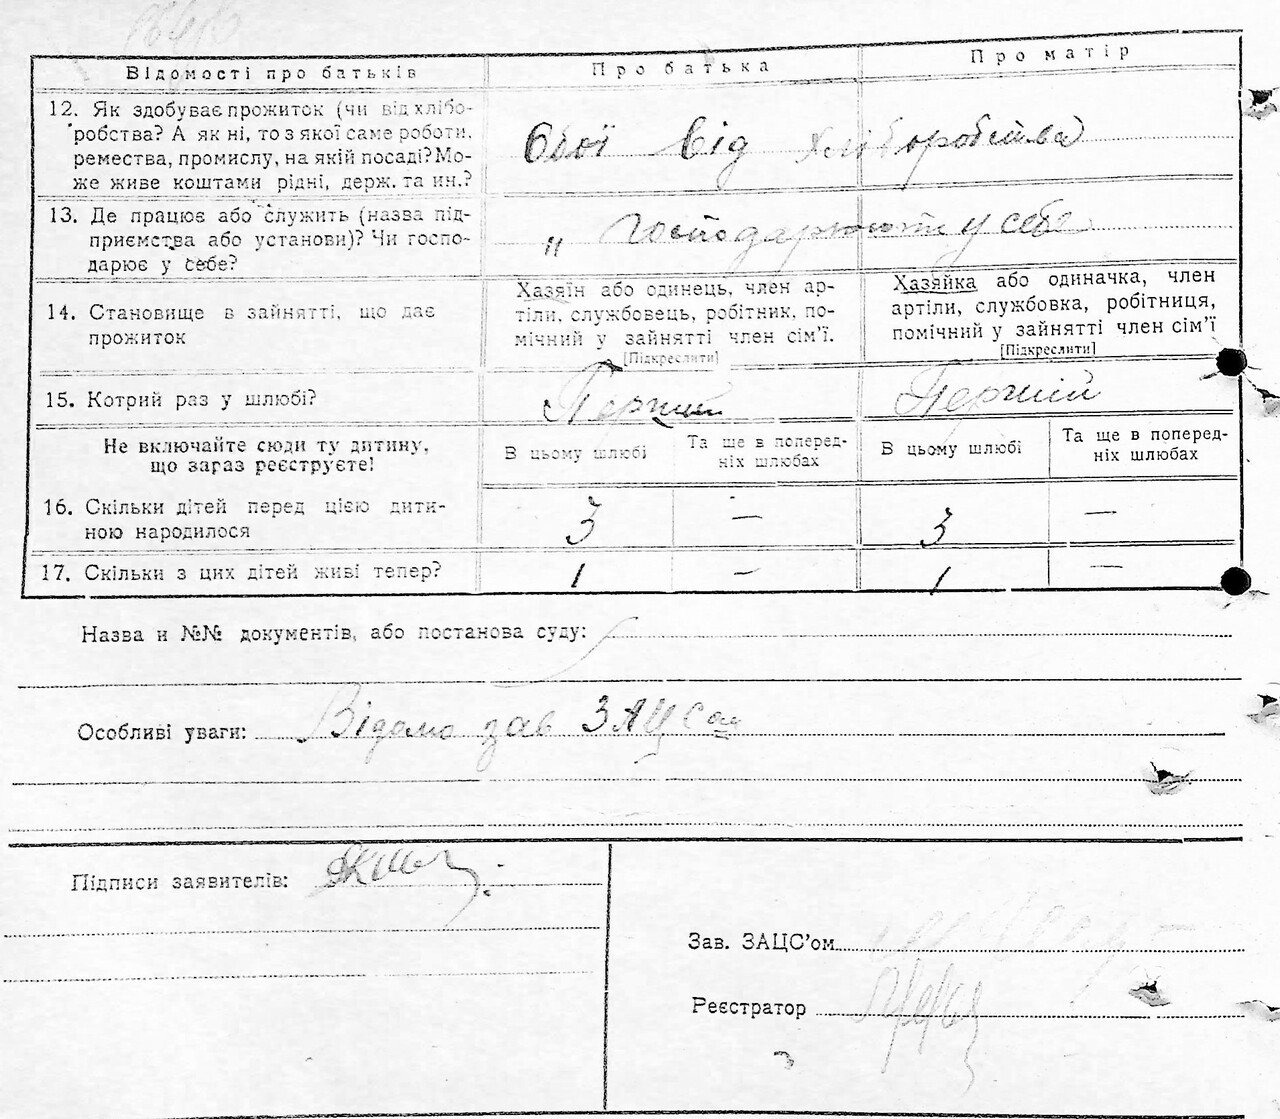 Відомості про батьків
Про батька
Про матір
12. Як здобуває прожиток (чи від хлібо-
робства? А як ні, то з якої саме роботи,
ремества, промислу, на якій посаді? Мо-
же живе коштами рідні, держ. та ин.?
Обої від хліборобства
13. Де працює або служить (назва під-
приємства або установи)? Чи госпо-
дарює у себе?
„ Господарюють у себе
14. Становище в зайнятті, що дає
прожиток
Хазяїн або одинець, член ар-
тіли, службовець, робітник, по-
мічний у зайнятті член сім’ї.
[Підкреслити]
Хазяйка або одиначка, член
артіли, службовка, робітниця,
помічний у зайнятті член сім’ї
[Підкреслити]
15. Котрий раз у шлюбі?
Перший
Перший
Не включайте сюди ту дитину,
що зараз реєструєте!
В цьому шлюбі
Та ще в поперед-
ніх шлюбах
В цьому шлюбі
Та ще в поперед-
ніх шлюбах
16. Скільки дітей перед цією дити-
ною народилося
3 — 3 —
17. Скільки з цих дітей живі тепер?
1 — 1 —
Назва и №№ документів, або постанова суду:
Особливі уваги: Відомо зав ЗАЦСом
Підписи заявителів:
Зав. ЗАЦС’ом
Реєстратор